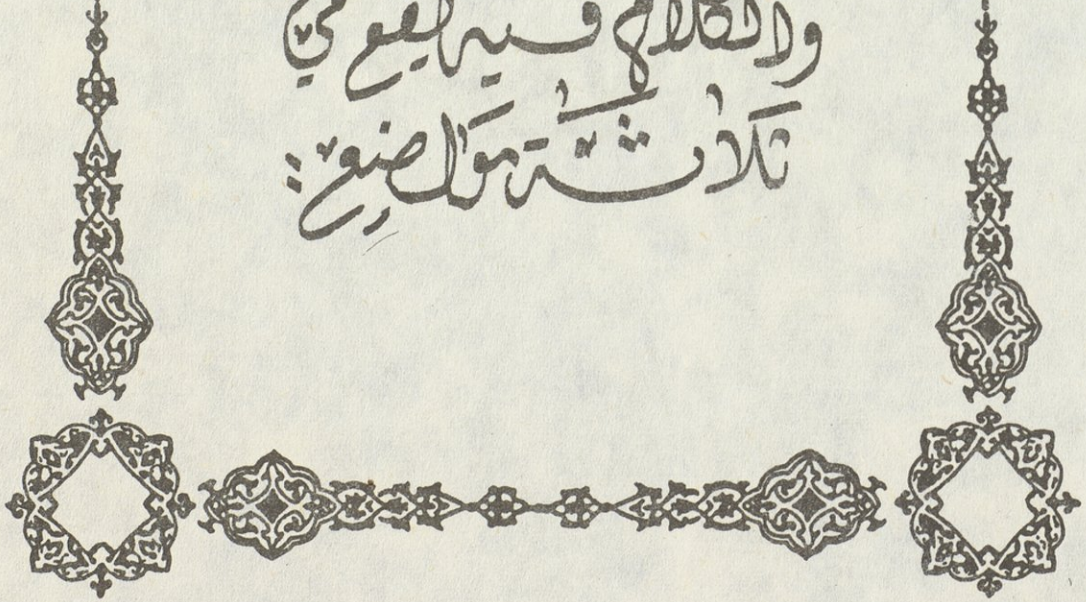 والكلام فيه يقع في
ثلاثة مواضع :